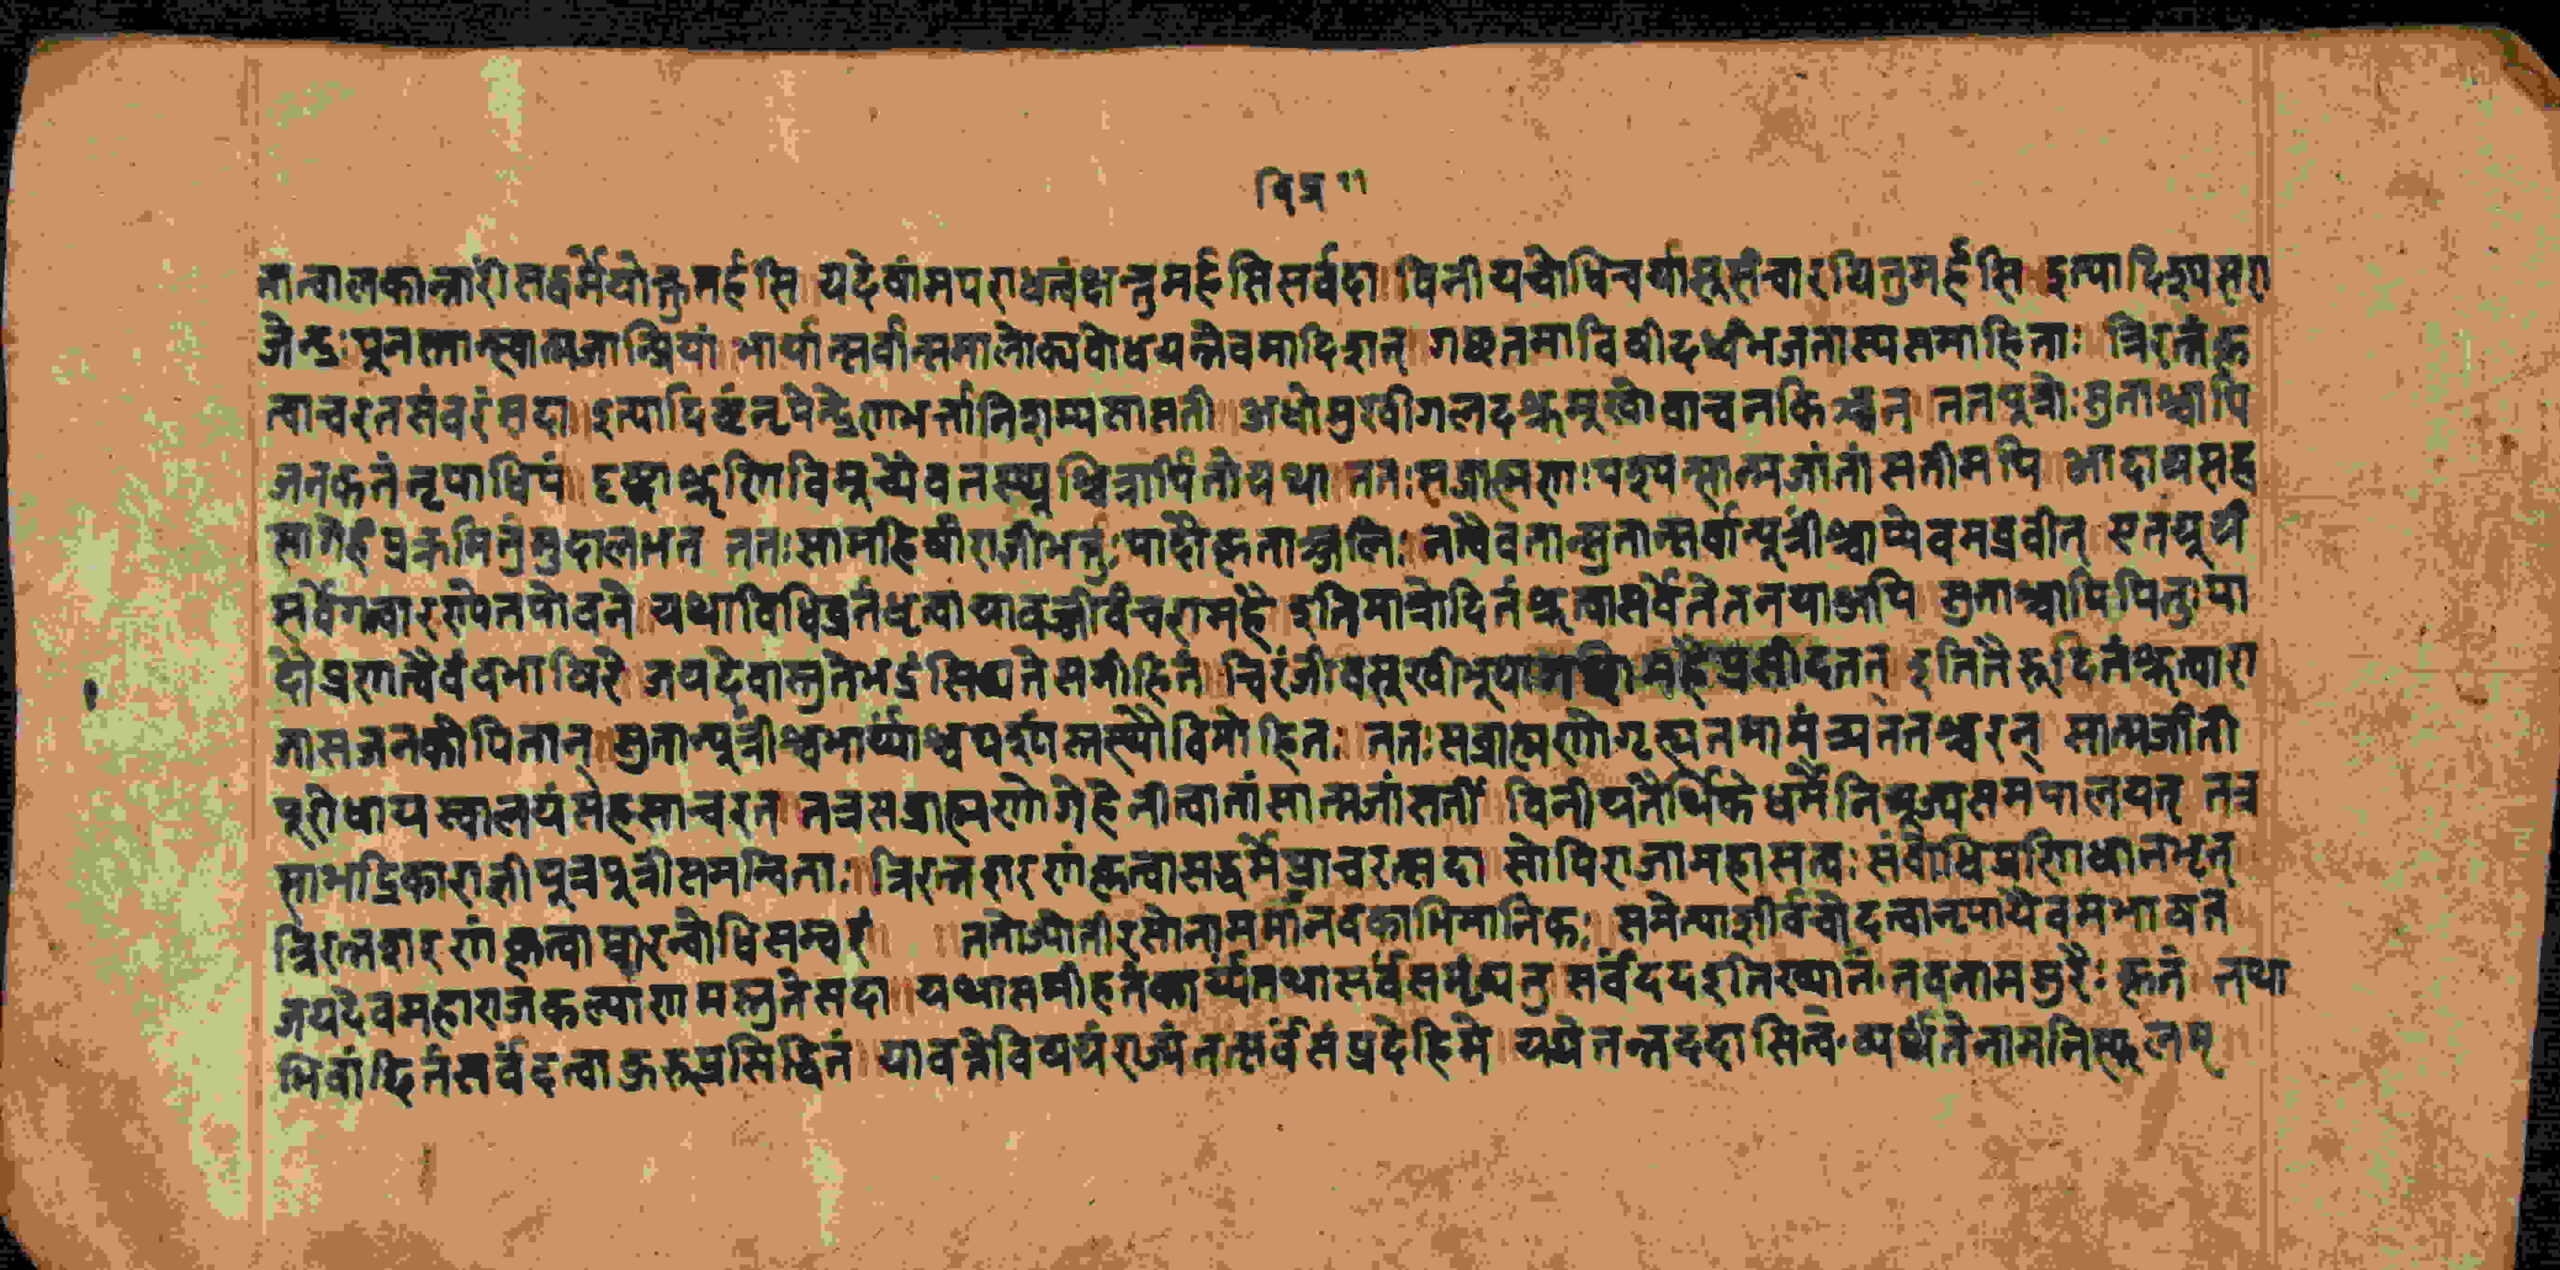 विप्र ११
न्बालकान्नारीं सद्धर्मे योक्तुमर्हसि यदेषामपराधत्वं क्षन्तुमर्हसि सर्वदा विनीय बोधिचर्यासु संचारयितुमर्हसि इत्यादिश्य स रा
जेन्द्रः पुनस्तान्स्वात्मजान्प्रियां भार्यान्सर्वान्समालोक्य बोधयन्नेवमादिशत् गछत मा विषीदध्वं भजतास्य समाहिताः त्रिरत्नं कृ
त्वा चरत संवरं सदा इत्यादिष्टं नृपेन्द्रेण भर्त्ता निशम्य सा सती अधोमुखी गलदश्रुमुखोवाच न किञ्चन तत पुत्रोः सुताश्चापि
जनकं ते नृपाधिपं दृष्ट्वाश्रूणि विमुच्येव तस्थुश्चित्रार्पितो यथा ततः स ब्राह्मणः पश्यन्सात्मजां तां सतीमपि आदाय सह
सा गेहं प्रक्रमितुं मुदालभत ततः सा महिषी राज्ञी भर्त्तुः पादौ कृताञ्जलिः नत्वैव तान्सुतान्सर्वान्पुत्रीश्चाप्येवमब्रवीत् एत पुत्री
सर्वे गत्वारण्ये तपोवने यथाविधि व्रतं धृत्वा यावज्जीवं चरामहै इति मात्रोदितं श्रुत्वा सर्वे ते तनया अपि सुताश्चापि पितु पा
दौ प्रणत्वैवं वभाषिरे जय देवास्तु ते भद्रं सिध्यते समीहितं चिरं जीव सुखी भूया महै प्रसीद तत् इति तै रुदितं श्रुत्वा रा
जा स जनको पि तान् सुतान्पुत्रीश्च भार्य्याश्च पश्यं तस्थौ विमोहितः ततः स ब्राह्मणो गृह्य तमामंत्र्य ततश्चरन् सात्मजां तां
पुरोधाय स्वालयं सहसाचरत तत्र स ब्राह्मणो गेहे नीत्वा तां सात्मजां सतीं विनीय तैर्थिके धर्मे नियुज्य समपालयत् तत्र
सा भद्रिका राज्ञी पुत्रपुत्री समन्विताः त्रिरत्नशरणं कृत्वा सद्धर्मे प्राचरत्सदा सो पि राजा महासत्वः संबोधिप्रणिधानभृत्
त्रिरत्नशरणं कृत्वा चारन्बोधिसन्वरं ततो ज्योतीरसो नाम मानदकाभिमानिकः समेत्याशीर्वचो दत्वा नृपायैवमभाषत
जय देव महाराज कल्याणमस्तु ते सदा यथासमीहतं कार्य्यं तथा सर्वं समृध्यतु सर्वंददइति ख्यातं तव नाम सुरैः कृतं तथा
भिवांछितं सर्वं दत्वा कुरु प्रसिद्धितं यावन्ते विषयं राज्यं तत्सर्वं संप्रदेहि मे यद्येतन्न ददासि त्वं व्यर्थं ते नाम निस्फलम्